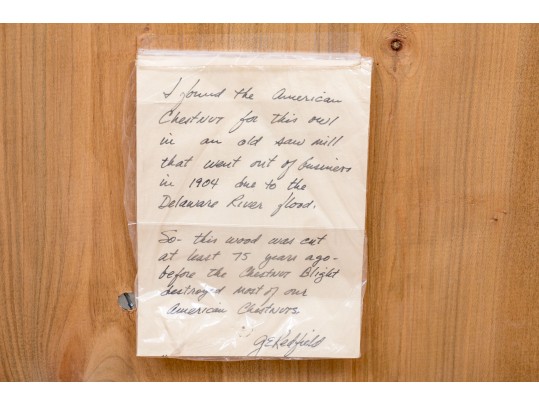 I found the American
Chestnut for this owl
in an old saw mill
that went out of business
in 1904 due to the
Delaware River flood.
So- this wood was cut
at least 75 years ago-
before the Chestnut Blight
destroyed most of our
American Chestnuts.
G E Redfield